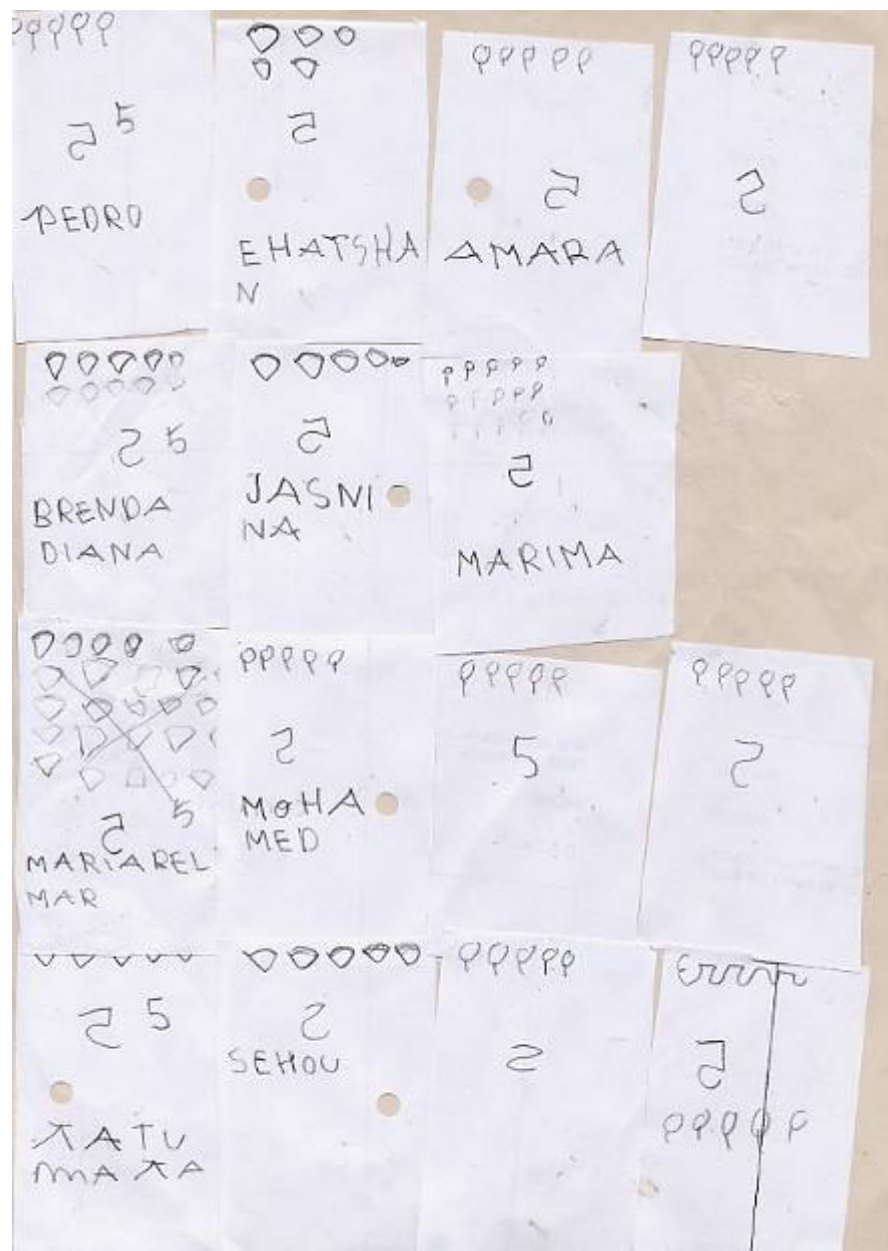 5 5
PEDRO
5
EHATSHA
N
5
AMARA
5
5 5
BRENDA
DIANA
5
JASNI
NA
5
MARIMA
5 5
MARIAREL
MAR
5
MOHA
MED
5
5
5 5
KATU
MAKA
5
SEHOU
5
5